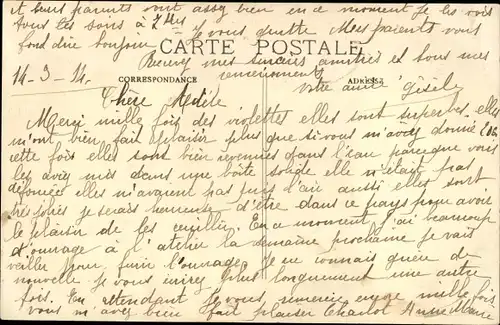 et leurs parents vont assez bien en ce moment je les vois
tous les soirs à 7 h Je vous quitte Mes parents vous
font dire bonjour
CARTE POSTALE
Recevez mes sincères amitiés et tous mes
14-3-14. CORRESPONDANCE remerciements ADRESSE
votre amie Gisèle
Chère Adèle
Merci mille fois des violettes elles sont superbes elles
m'ont bien fait plaisir plus que si vous m'avez donné
cette fois elles sont bien revenues dans l'eau parce que vous
les avez mis dans une boîte solide elle n'était pas
défoncée elles n'avaient pas pris l'air aussi elles sont
très jolies je serais heureuse d'être dans ce pays pour avoir
le plaisir de les cueillir. En ce moment j'ai beaucoup
d'ouvrage à l'atelier la semaine prochaine je vais
veiller pour finir l'ouvrage. Je ne connais guère de
nouvelle je vous écrirez plus longuement une autre
fois. En attendant je vous remercie encore mille fois
vous m'avez bien fait plaisir Charlot Anne Marie